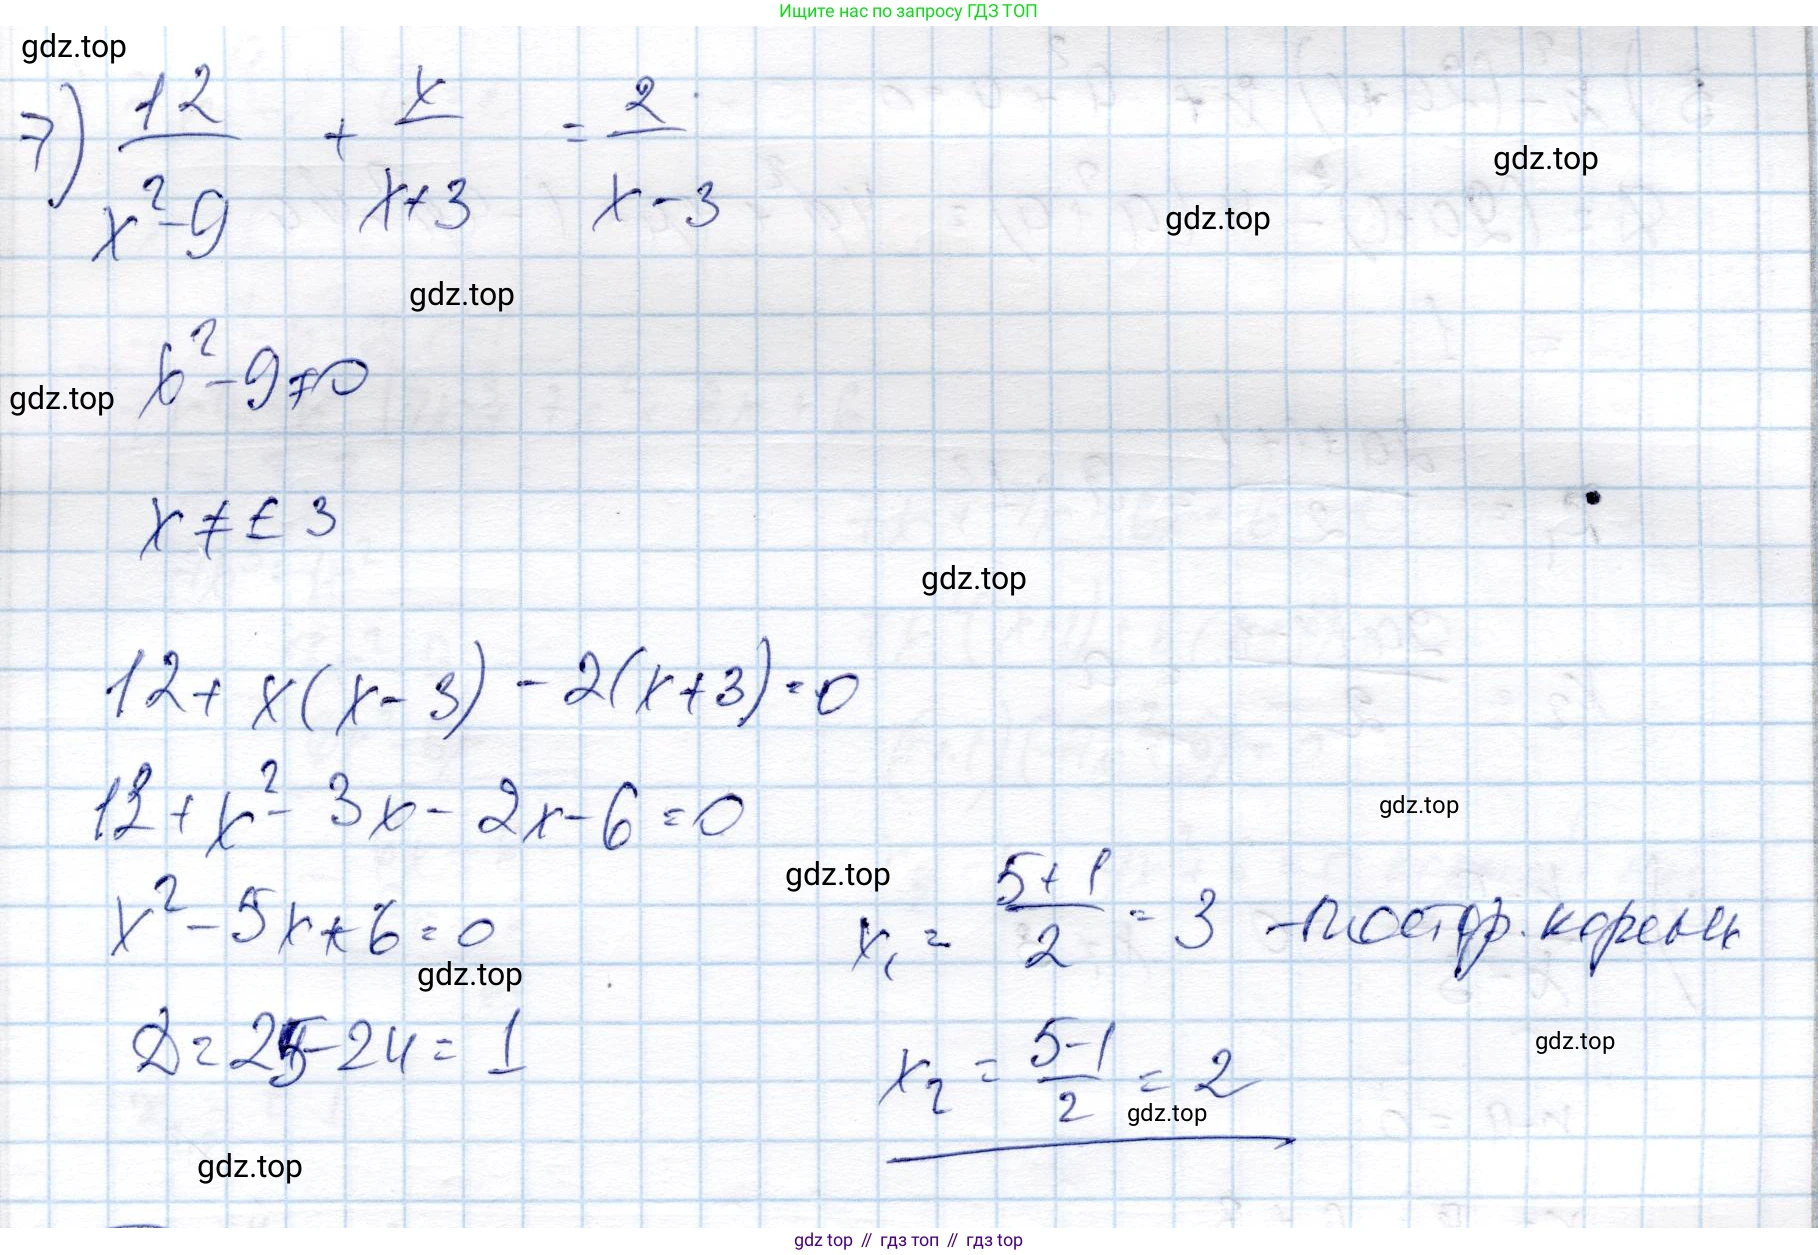 Ищите нас по запросу ГДЗ ТОП
gdz.top
7) 12/(x²-9) + x/(x+3) = 2/(x-3)
gdz.top
gdz.top
gdz.top
x²-9≠0
gdz.top
x ≠ ± 3
gdz.top
12+ x(x-3) - 2(x+3)=0
12+x²-3x-2x-6=0
gdz.top
x²-5x+6=0
gdz.top
x₁ = (5+1)/2 = 3 - постор. корень
gdz.top
D=25-24=1
gdz.top
x₂ = (5-1)/2 = 2
gdz.top
gdz.top
gdz.top // гдз топ // гдз top